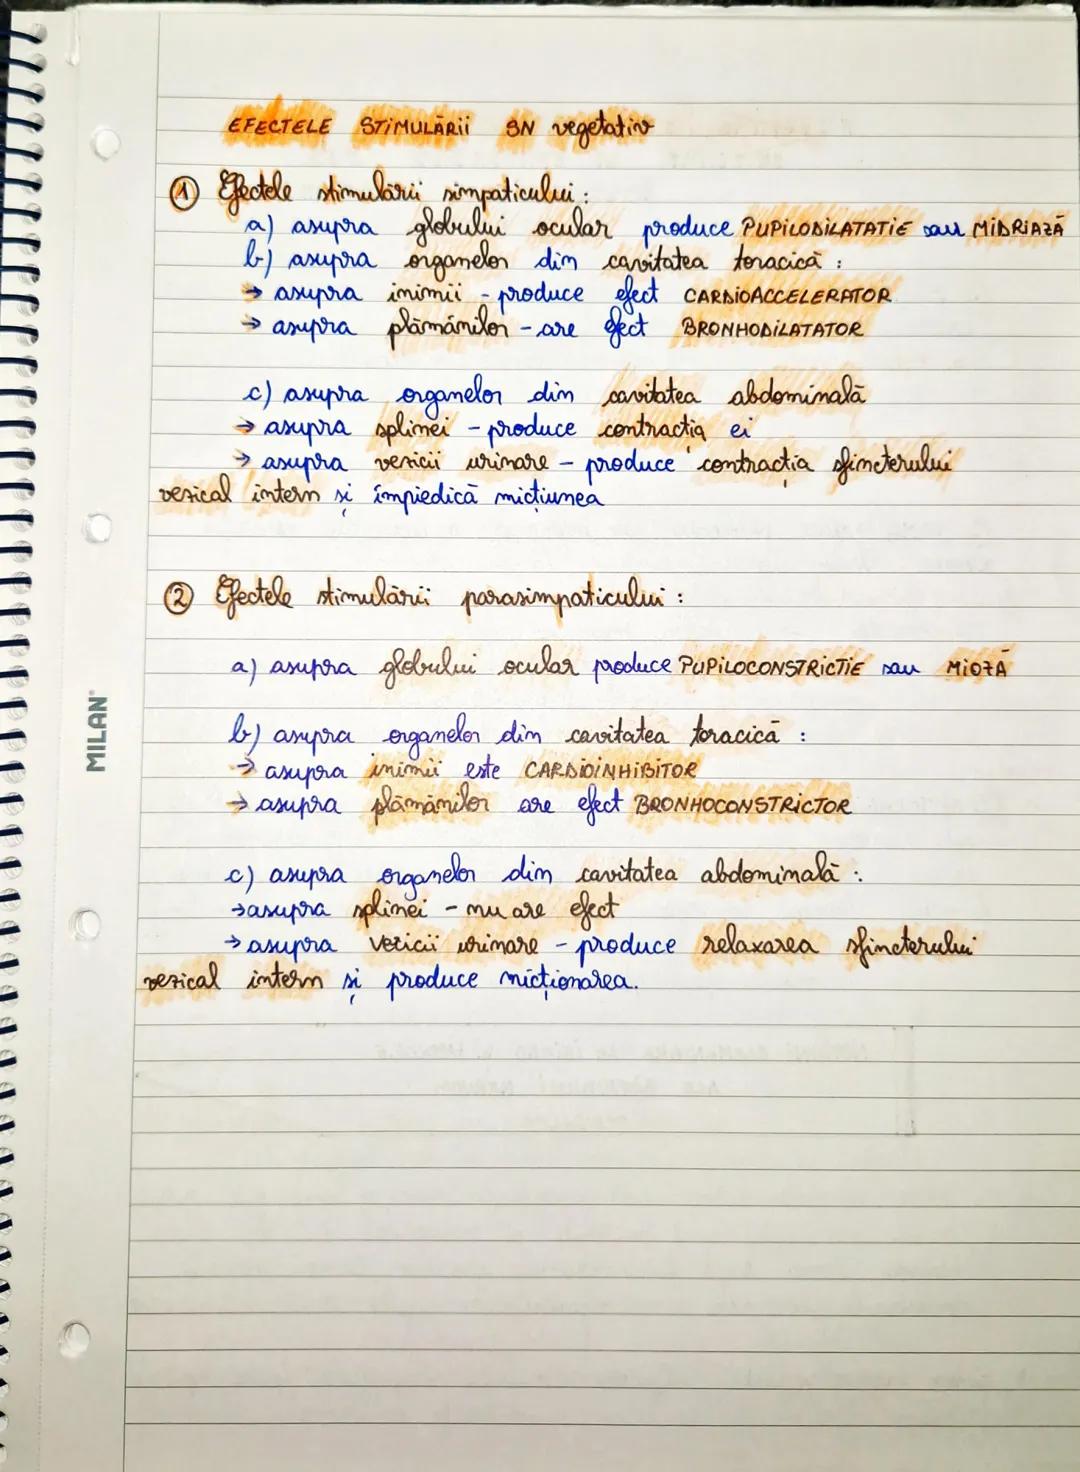 EFECTELE STIMULĂRII SN vegetativ
① Efectele stimulării simpaticului :
a) asupra globului ocular produce PUPILODILATAȚIE sau MIDRIAZĂ
b) asupra organelor din cavitatea toracică :
→ asupra inimii - produce efect CARDIOACCELERATOR
→ asupra plămânilor - are efect BRONHODILATATOR
c) asupra organelor din cavitatea abdominală
→ asupra splinei - produce contracția ei
→ asupra vezicii urinare - produce contracția sfincterului
vezical intern și împiedică micțiunea
② Efectele stimulării parasimpaticului :
a) asupra globului ocular produce PUPILOCONSTRICTIE sau MIOZĂ
b) asupra organelor din cavitatea toracică :
→ asupra inimii este CARDIOINHIBITOR
→ asupra plămânilor are efect BRONHOCONSTRICTOR
c) asupra organelor din cavitatea abdominală :
→ asupra splinei - nu are efect
→ asupra vezicii urinare - produce relaxarea sfincterului
vezical intern și produce micționarea.
MILAN